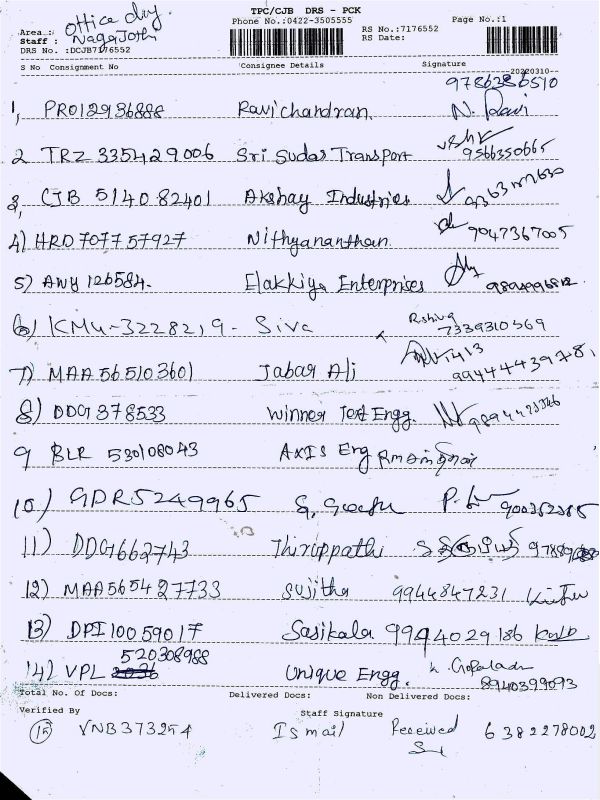 TPC/CJB DRS - PCK
Office dly.
Phone No.:0422-3505555 Page No.:1
Area :
Staff : Naga Jothi
RS No.:7176552
RS Date:
DRS No. :DCJB7176552
S No Consignment No Consignee Details Signature
20220310
9786286510
1, PRO12936888 Ravichandran. N. Ravi
2 TRZ 335429006 Sri Sudar Transport 9566350665
3, CJB 514082401 Akshay Industries
4) HRD 707757927 Nithyananthan. 9047367005
5) AWY 126584. Elakkiya Enterprises
6) KMU-3228219 - Siva 7339310569
7) MAA 565103601 Jabar Ali 9944443978,
8) DDG 378533 Winner Text Engg.
9 BLR 530108043 AXIS Eng
10) GDR5249965 G,
11) DDG1662743 Thiruppathi
12) MAA 565427733 Sujitha 9944847231
13) DPI 10059017 Sasikala 9944029186
14) VPL 520308988 Unique Engg. 8940399093
Total No. Of Docs: Delivered Docs: Non Delivered Docs:
Verified By Staff Signature
15 VNB373254 Ismail Received 6382278002